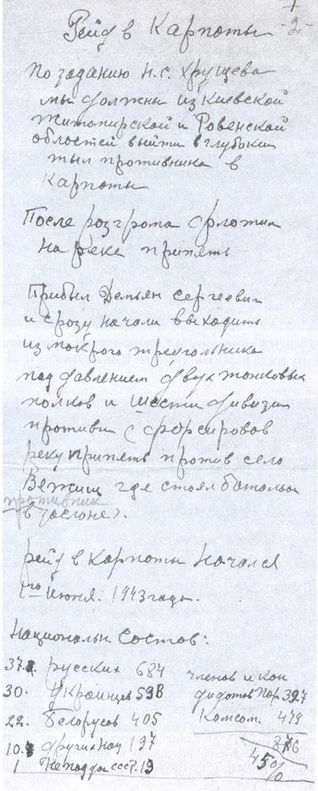 -2-
Рейд в Карпаты
По заданию Н.С. Хрущева
мы должны из Киевской
Житомирской и Ровенской
областей выйти в глубокий
тыл противника в
Карпаты
После розгрома флотили
на реке припять
Прибыл Демьян Сергеевич
и срозу начали выходить
из мокрого треугольника
под давлением двух танковых
полков и шести дивизии
противн сфорсировов
реку припять против село
Вежищ где стоял батольон
противник
в заслоне).
рейд в Карпаты начался
июня. 1943 года.
Национальн Состов:
37. русских 684 членов и кан
30. Украинцев 598 дидатов пар. 397
22. Белорусов 405 Комсом. 479
10. других нац 197 876
1 СССР. 19 45%